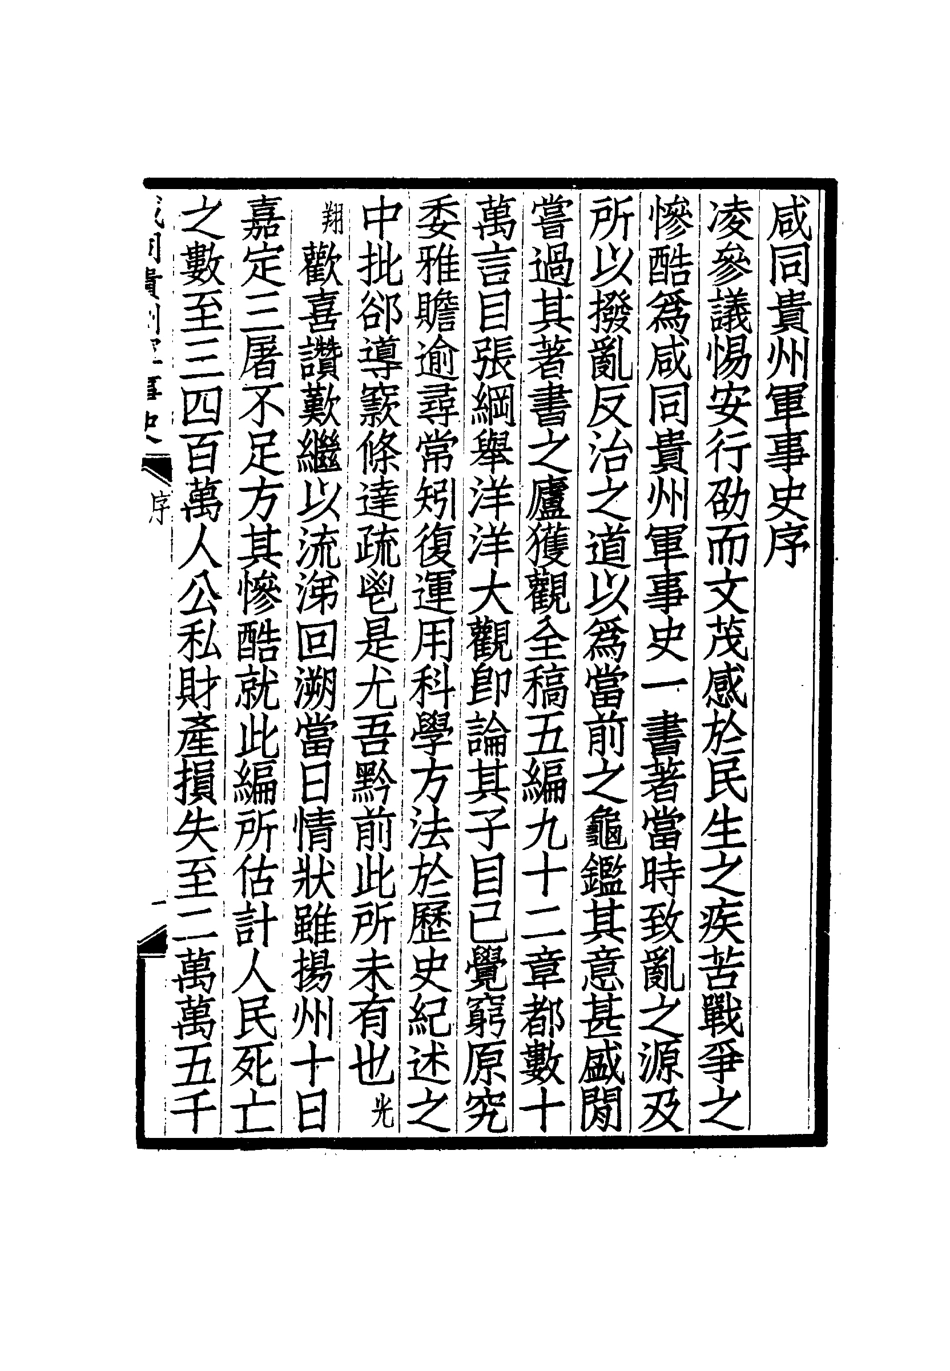 咸同貴州軍事史序
凌參議惕安行劭而文茂感於民生之疾苦戰爭之
慘酷爲咸同貴州軍事史一書著當時致亂之源及
所以撥亂反治之道以爲當前之龜鑑其意甚盛閒
嘗過其著書之廬獲觀全稿五編九十二章都數十
萬言目張綱舉洋洋大觀卽論其子目已覺窮原究
委雅贍逾尋常矧復運用科學方法於歷史紀述之
中批郤導窾條達疏鬯是尤吾黔前此所未有也光
翔歡喜讚歎繼以流涕回溯當日情狀雖揚州十日
嘉定三屠不足方其慘酷就此編所估計人民死亡
之數至三四百萬人公私財產損失至二萬萬五千
咸同貴州軍事史 序 一